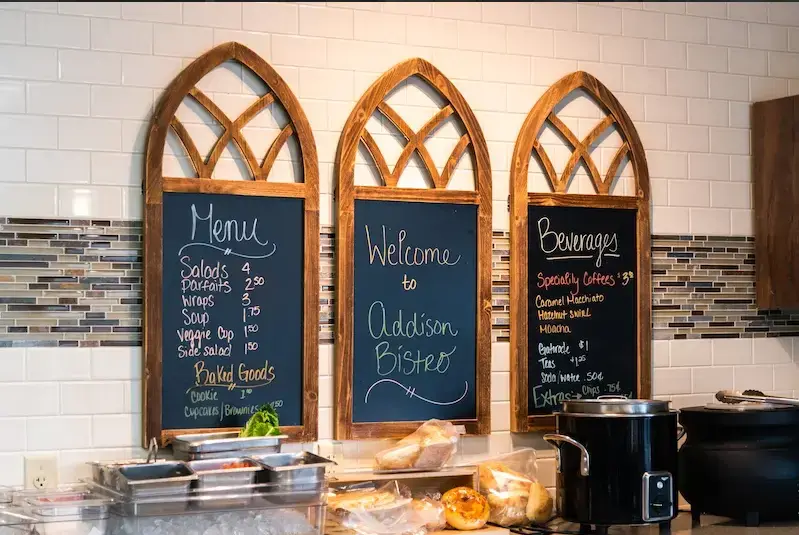 Menu
Salads 4
Parfaits 2.50
Wraps 3
Soup 1.75
Veggie Cup 1.50
Side salad 1.50
Baked Goods
Cookie
Cupcakes/Brownies
Welcome
to
Addison
Bistro
Beverages
Speciality Coffees $3
Caramel Macchiato
Hazelnut swirl
Mocha
Gatorade $1
Teas $1.25
Soda/water .50¢
Extras Chips .75¢